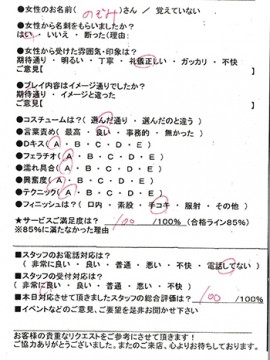 ●女性のお名前(のぞみ)さん / 覚えていない
●女性から名刺をもらいましたか?
はい・いいえ・断った(理由:
●女性から受けた雰囲気・印象は?
期待通り・明るい・丁寧・礼儀正しい・ガッカリ・不快
ご意見【 】
●プレイ内容はイメージ通りでしたか?
期待通り・イメージと違った
ご意見【 】
●コスチュームは?(選んだ通り・選んだのと違う)
●言葉責め(最高・良い・事務的・無かった)
●Dキス(A・B・C・D・E)
●フェラチオ(A・B・C・D・E)
●濡れ具合(A・B・C・D・E)
●興奮度(A・B・C・D・E)
●テクニック(A・B・C・D・E)
●フィニッシュは?(口内・素股・手コキ・服射・その他)
★サービスご満足度は? 100 /100%(合格ライン85%)
※85%に満たなかった理由
■スタッフのお電話対応は?
(非常に良い・良い・普通・悪い・不快・電話してない)
■スタッフの受付対応は?
(非常に良い・良い・普通・悪い・不快)
■本日対応させて頂きましたスタッフの総合評価は? 100 /100%
■イベントなどのご意見、ご要望を是非お聞かせ下さい
お客様の貴重なリクエストをご参考にさせて頂きます!
ご協力ありがとうございました。またのご来店、心よりお待ちしております。